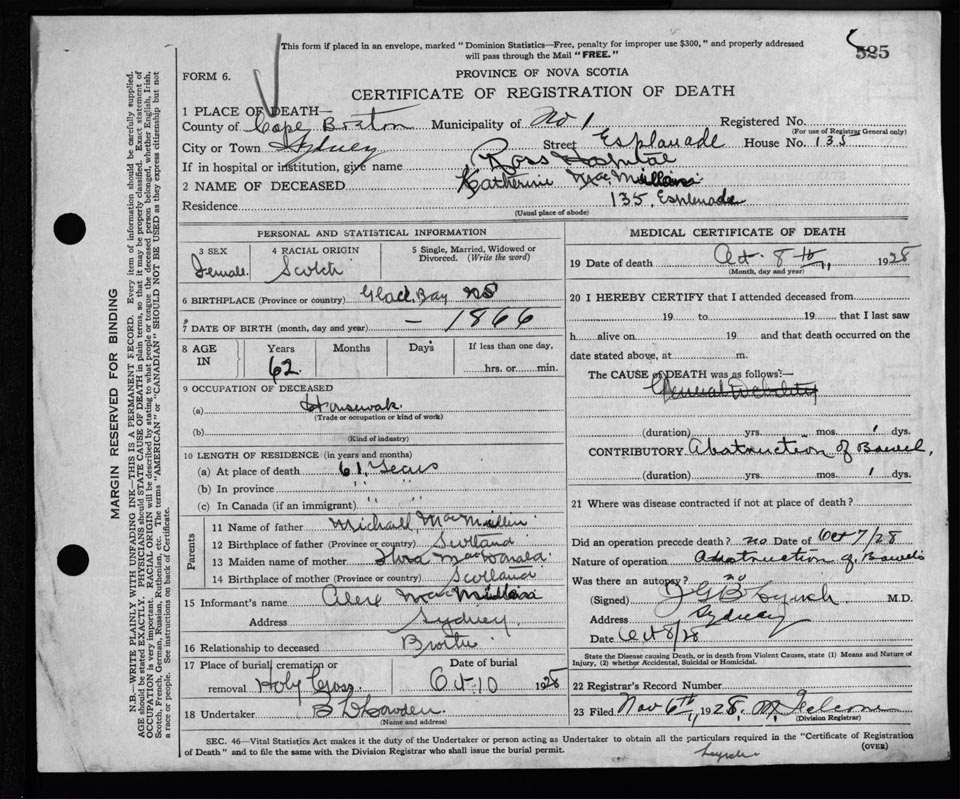 This form if placed in an envelope, marked "Dominion Statistics—Free, penalty for improper use $300," and properly addressed
will pass through the Mail "FREE."
525
FORM 6.
PROVINCE OF NOVA SCOTIA
CERTIFICATE OF REGISTRATION OF DEATH
1 PLACE OF DEATH—
County of Cape Breton Municipality of No 1 Registered No.
(For use of Registrar General only)
City or Town Sydney Street Esplanade House No. 135
If in hospital or institution, give name Ross Hospital
2 NAME OF DECEASED Katherine MacMillan
Residence 135 Esplanade
(Usual place of abode)
PERSONAL AND STATISTICAL INFORMATION
3 SEX 4 RACIAL ORIGIN 5 Single, Married, Widowed or
Divorced. (Write the word)
Female. Scotch
6 BIRTHPLACE (Province or country) Glace Bay NS
7 DATE OF BIRTH (month, day and year) — 1866
8 AGE IN Years Months Days If less than one day,
62 hrs. or min.
9 OCCUPATION OF DECEASED
(a) Housework
(Trade or occupation or kind of work)
(b)
(Kind of industry)
10 LENGTH OF RESIDENCE (in years and months)
(a) At place of death 61 Years
(b) In province " "
(c) In Canada (if an immigrant) " "
Parents
11 Name of father Michael MacMillan
12 Birthplace of father (Province or country) Scotland
13 Maiden name of mother MacDonald
14 Birthplace of mother (Province or country) Scotland
15 Informant's name Alex MacMillan
Address Sydney
16 Relationship to deceased Brother
17 Place of burial, cremation or Date of burial
removal Holy Cross Oct 10 1928
18 Undertaker
(Name and address)
MEDICAL CERTIFICATE OF DEATH
19 Date of death Oct. 8th, 1928
(Month, day and year)
20 I HEREBY CERTIFY that I attended deceased from
19 to 19 that I last saw
h alive on 19 and that death occurred on the
date stated above, at m.
The CAUSE of DEATH was as follows:—
General Debility
(duration) yrs. mos. 1 dys.
CONTRIBUTORY. Obstruction of Bowel,
(duration) yrs. mos. 1 dys.
21 Where was disease contracted if not at place of death?
Did an operation precede death? no Date of Oct 7/28
Nature of operation Obstruction of Bowels
Was there an autopsy? no
(Signed) J G B Lynch M.D.
Address Sydney
Date Oct 8/28
State the Disease causing Death, or in death from Violent Causes, state (1) Means and Nature of
Injury, (2) whether Accidental, Suicidal or Homicidal.
22 Registrar's Record Number
23 Filed Nov 6th, 1928,
(Division Registrar)
SEC. 46—Vital Statistics Act makes it the duty of the Undertaker or person acting as Undertaker to obtain all the particulars required in the "Certificate of Registration
of Death" and to file the same with the Division Registrar who shall issue the burial permit.
(OVER)
MARGIN RESERVED FOR BINDING
N.B.—WRITE PLAINLY WITH UNFADING INK—THIS IS A PERMANENT RECORD. Every item of information should be carefully supplied.
AGE should be stated EXACTLY. PHYSICIANS should STATE CAUSE OF DEATH in plain terms, so that it may be properly classified. Exact statement of
OCCUPATION is very important. RACIAL ORIGIN will be described by stating to what people or tongue the deceased person belonged, whether English, Irish,
Scotch, French, German, Russian, Ruthenian, etc. The terms "AMERICAN" or "CANADIAN" SHOULD NOT BE USED as they express citizenship but not
a race or people. See instructions on back of Certificate.